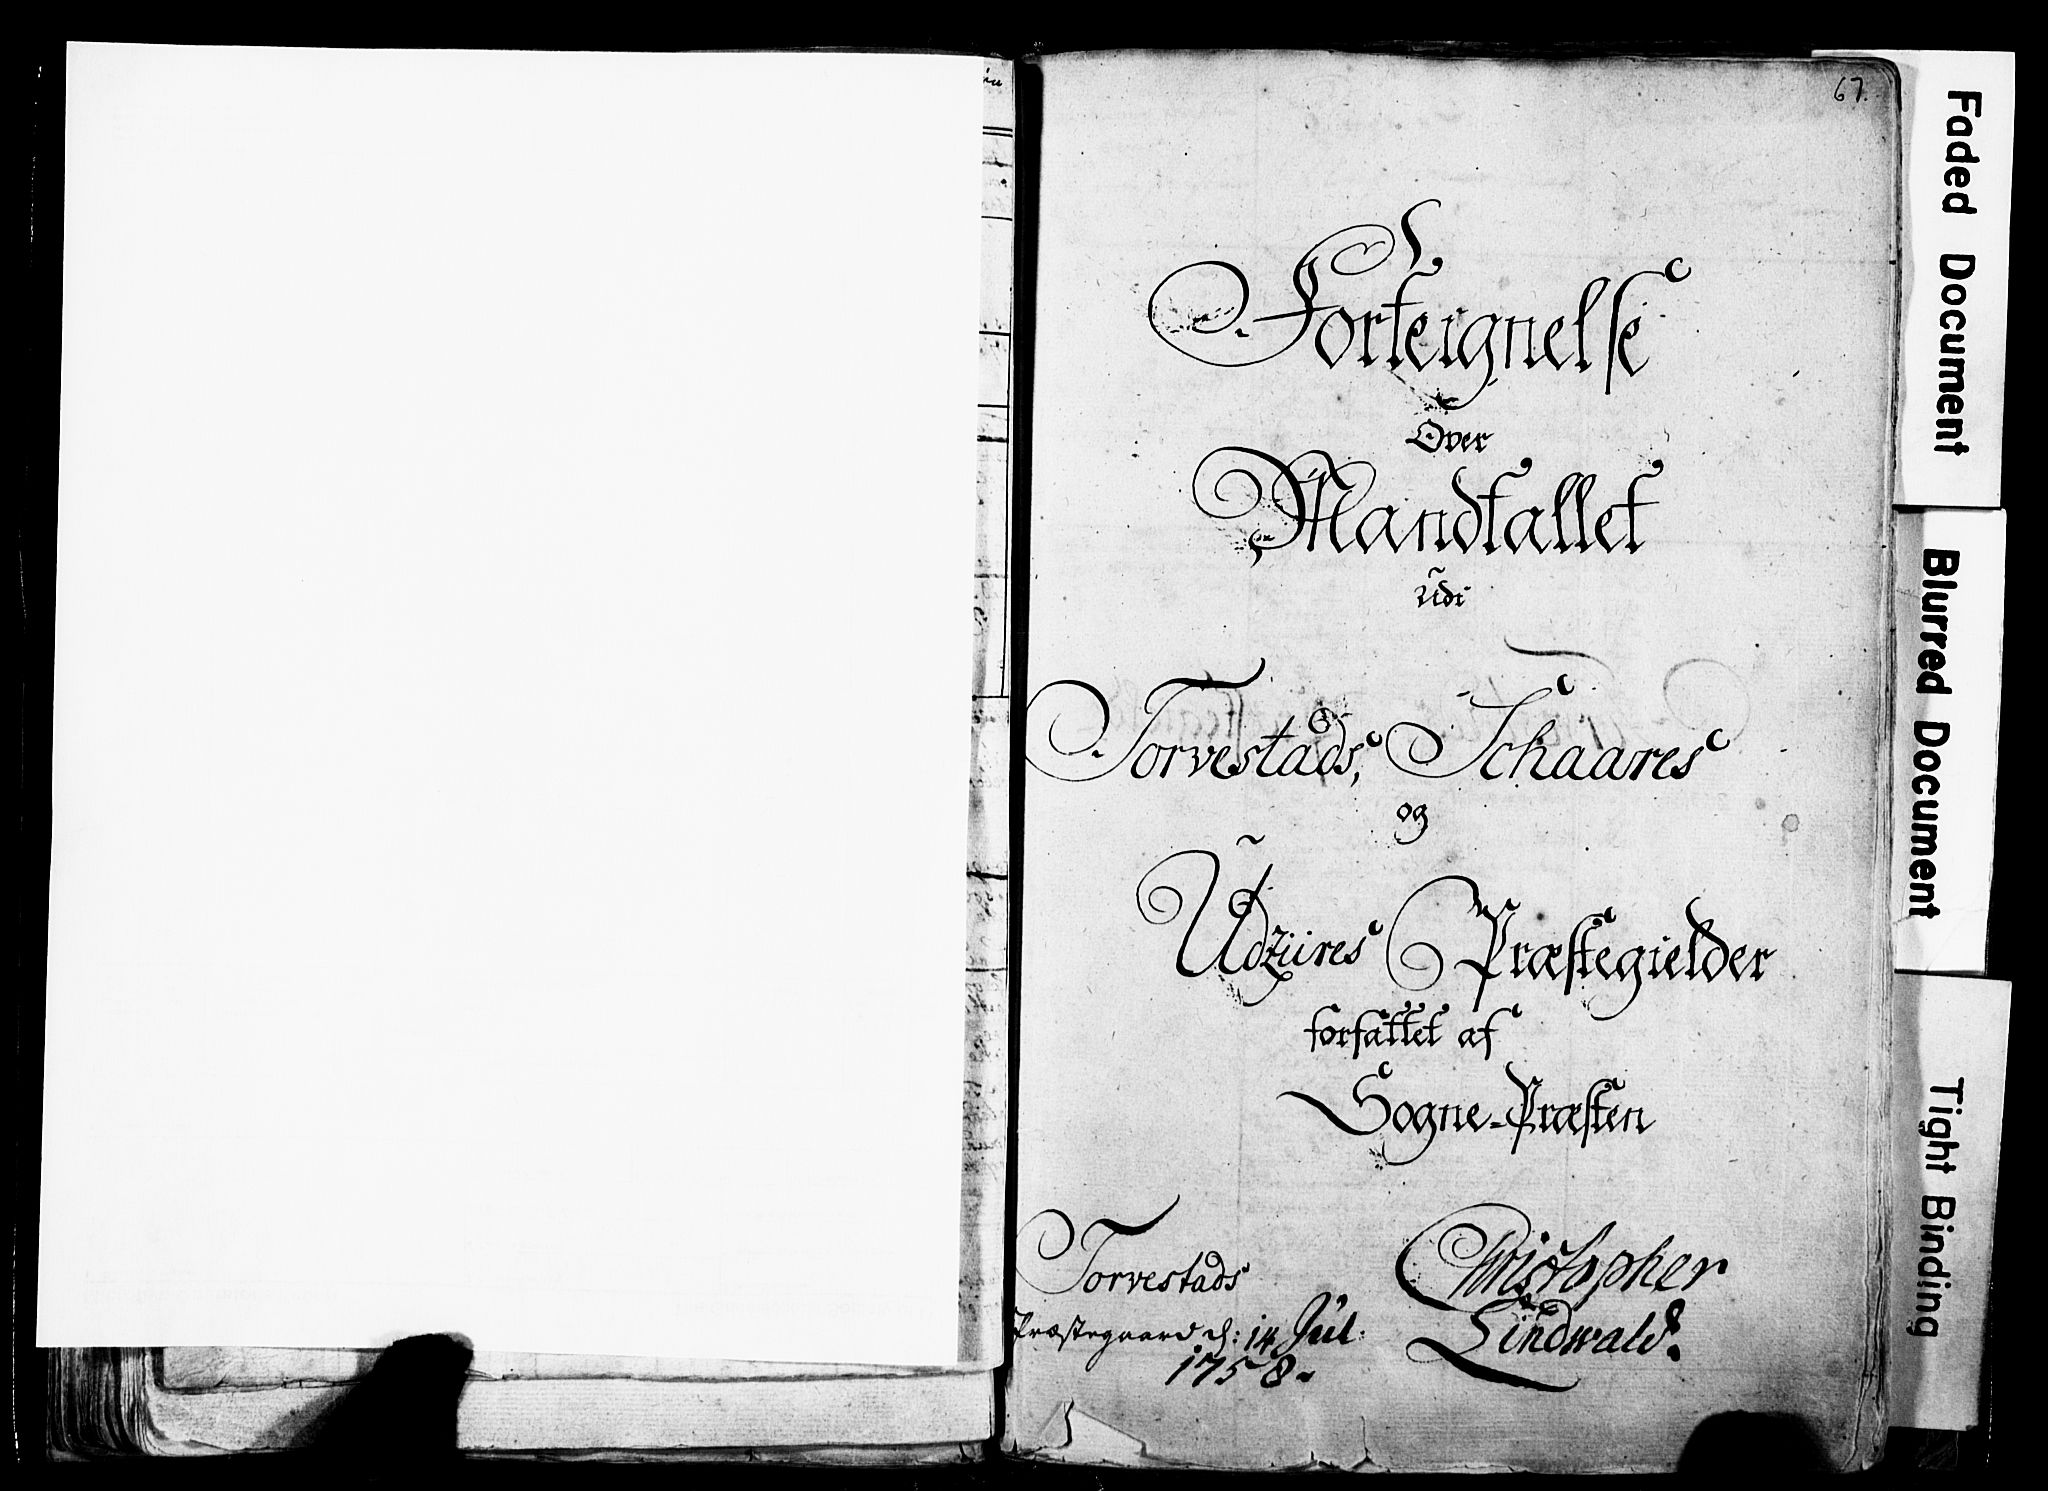 67.
Forteignelse
Over
Mandtallet
Udi
Torvestads, Schaares
og
Udzüres Præstegielder
forfattet af
Sogne-Præsten
Torvestads
Præstegaard d: 14 Jul:
1758.
Christopher
Lindwald.
Faded Document
Blurred Document
Tight Binding